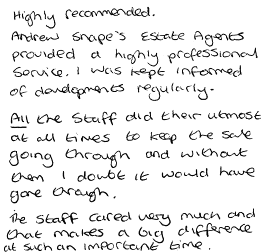 Highly recommended.
Andrew Snape's Estate Agents
provided a highly professional
service. I was kept informed
of developments regularly.
All the staff did their utmost
at all times to keep the sale
going through and without
them I doubt it would have
gone through.
The staff cared very much and
that makes a big difference
at such an important time.